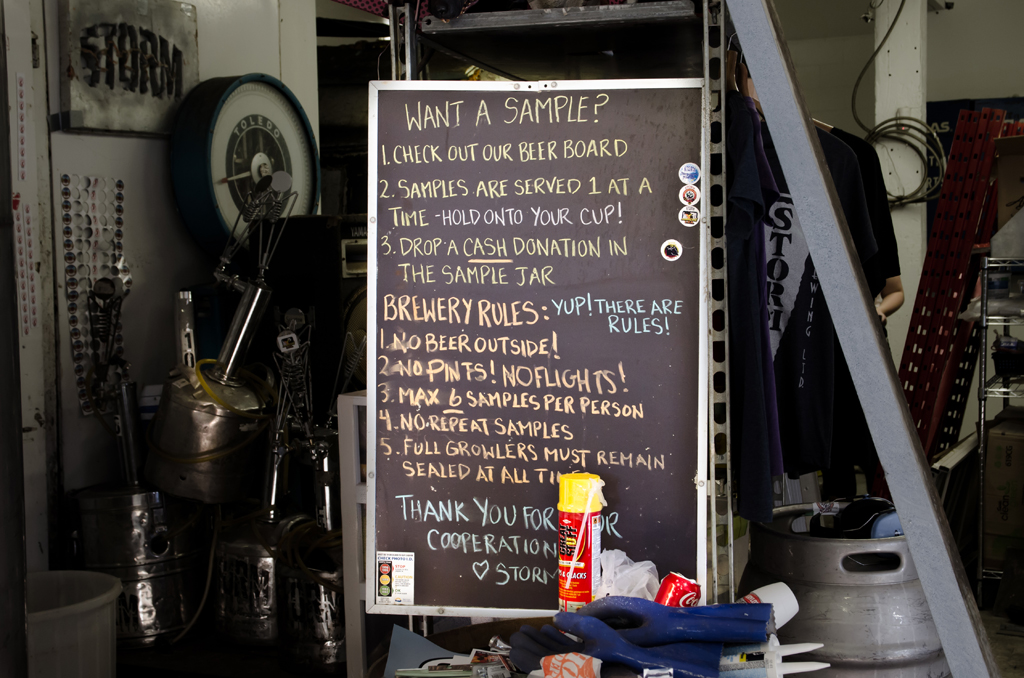 STORM
TOLEDO
WANT A SAMPLE?
1. CHECK OUT OUR BEER BOARD
2. SAMPLES ARE SERVED 1 AT A
TIME - HOLD ONTO YOUR CUP!
3. DROP A CASH DONATION IN
THE SAMPLE JAR
BREWERY RULES: YUP! THERE ARE
RULES!
1. NO BEER OUTSIDE!
2 NO PINTS! NO FLIGHTS!
3. MAX 6 SAMPLES PER PERSON
4. NO REPEAT SAMPLES
5. FULL GROWLERS MUST REMAIN
SEALED AT ALL
THANK YOU FOR
COOPERATION
♡ STORM
STOP
CRACKS
STORM